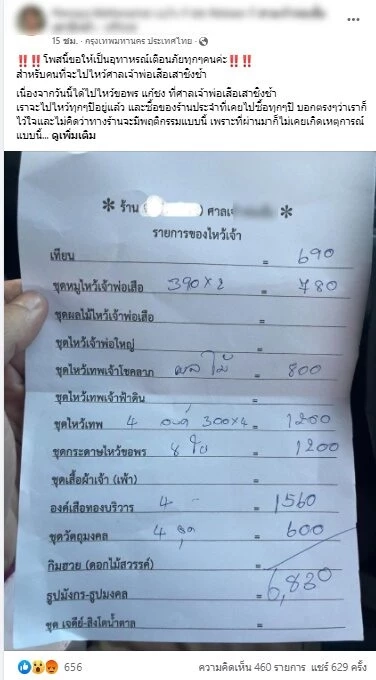 15 ชม. · กรุงเทพมหานคร ประเทศไทย ·
‼️‼️โพสนี้ขอให้เป็นอุทาหรณ์เตือนภัยทุกๆคนค่ะ‼️‼️
สำหรับคนที่จะไปไหว้ศาลเจ้าพ่อเสือเสาชิงช้า
เนื่องจากวันนี้ได้ไปไหว้ขอพร แก้ชง ที่ศาลเจ้าพ่อเสือเสาชิงช้า
เราจะไปไหว้ทุกๆปีอยู่แล้ว และซื้อของร้านประจำที่เคยไปซื้อทุกๆปี บอกตรงๆว่าเราก็
ไว้ใจและไม่คิดว่าทางร้านจะมีพฤติกรรมแบบนี้ เพราะที่ผ่านมาก็ไม่เคยเกิดเหตุการณ์
แบบนี้... ดูเพิ่มเติม
* ร้าน ศาลเจ้ *
รายการของไหว้เจ้า
เทียน = 690
ชุดหมูไหว้เจ้าพ่อเสือ 390 x 2 = 780
ชุดผลไม้ไหว้เจ้าพ่อเสือ =
ชุดไหว้เจ้าพ่อใหญ่ =
ชุดไหว้เทพเจ้าโชคลาภ ผลไม้ = 800
ชุดไหว้เทพเจ้าฟ้าดิน =
ชุดไหว้เทพ 4 องค์ 300x4 = 1200
ชุดกระดาษไหว้ขอพร 8 ใบ = 1200
ชุดเสื้อผ้าเจ้า (เผ้า) =
องค์เสือทองบริวาร 4 - = 1560
ชุดวัตถุมงคล 4 ชุด = 600
กิมฮวย (ดอกไม้สวรรค์) =
ธูปมังกร-ธูปมงคล = 6,830
ชุด เจดีย์-สิงโตน้ำตาล =
656
ความคิดเห็น 460 รายการ แชร์ 629 ครั้ง